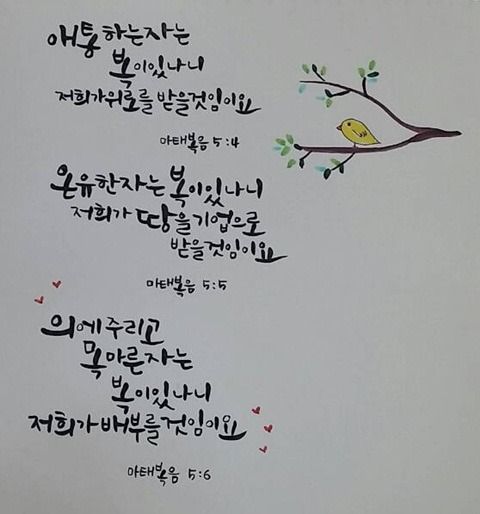 애통하는자는
복이있나니
저희가위로를 받을것임이요
마태복음 5:4
온유한자는 복이있나니
저희가 땅을기업으로
받을것임이요
마태복음 5:5
의에주리고
목마른자는
복이있나니
저희가배부를것임이요
마태복음 5:6